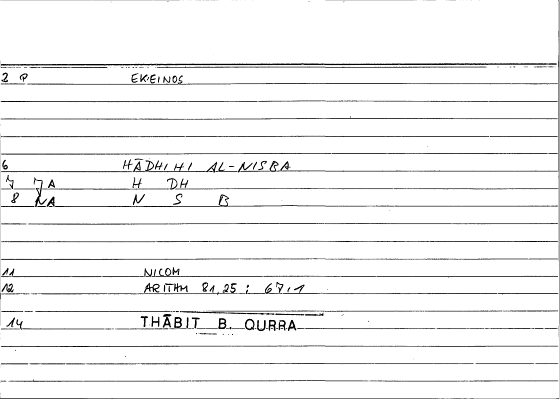 2 P EKEINOS
6 HĀDHIHI AL-NISBA
7 7A H DH
8 NA N S B
11 NICOM
12 ARITHM 81,25 : 67,1
14 THĀBIT B. QURRA